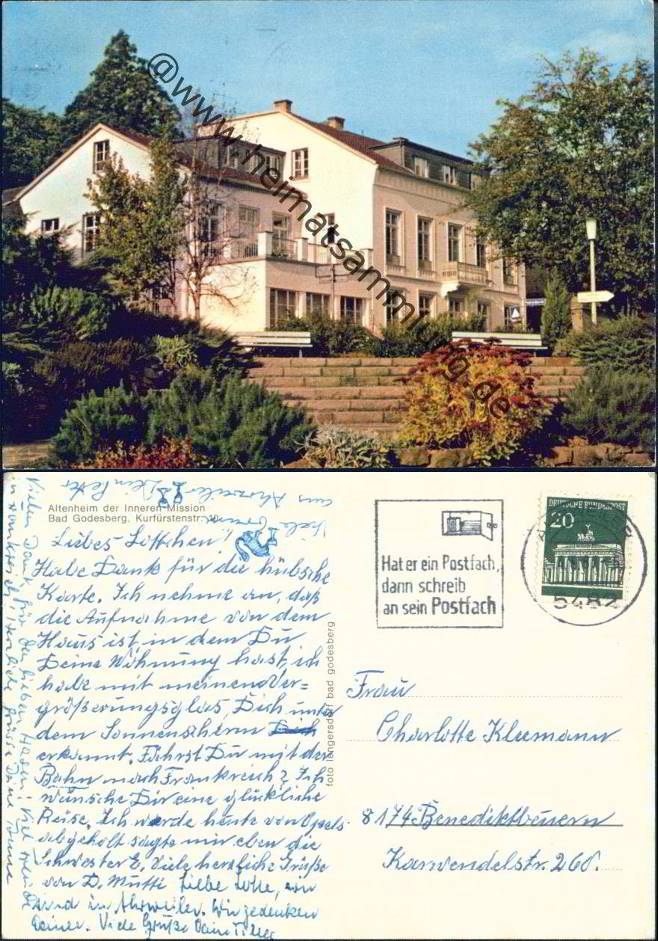 @www.heimatsammlung.de
Altenheim der Inneren Mission
Bad Godesberg, Kurfürstenstr. 10
Liebes Lottchen!
Habe Dank für die hübsche
Karte. Ich nehme an, daß
die Aufnahme von dem
Haus ist, in dem Du
Deine Wohnung hast, ich
habe mit meinem Ver=
größerungsglas, Dich unter
dem Sonnenschirm
erkannt. Fährst Du mit der
Bahn nach Frankreich? Ich
wünsche Dir eine glückliche
Reise. Ich werde heute von
abgeholt sagte mir eben die
Schwester E. Viele herzliche Grüße
von D. Mutti Liebe Lotte,
sind in Ahrweiler. Wir gedenken
Deiner. Viele Grüße Dein
Vielen Dank für den lieben
in Frankreich! Herzliche Grüße Deine
Viele
aus Ahrweiler Dein Peter
foto lengersdorf bad godesberg
Hat er ein Postfach,
dann schreib
an sein Postfach
DEUTSCHE BUNDESPOST
20
5482
Frau
Charlotte Kleemann
8174 Benediktbeuern
Karwendelstr. 26 b.